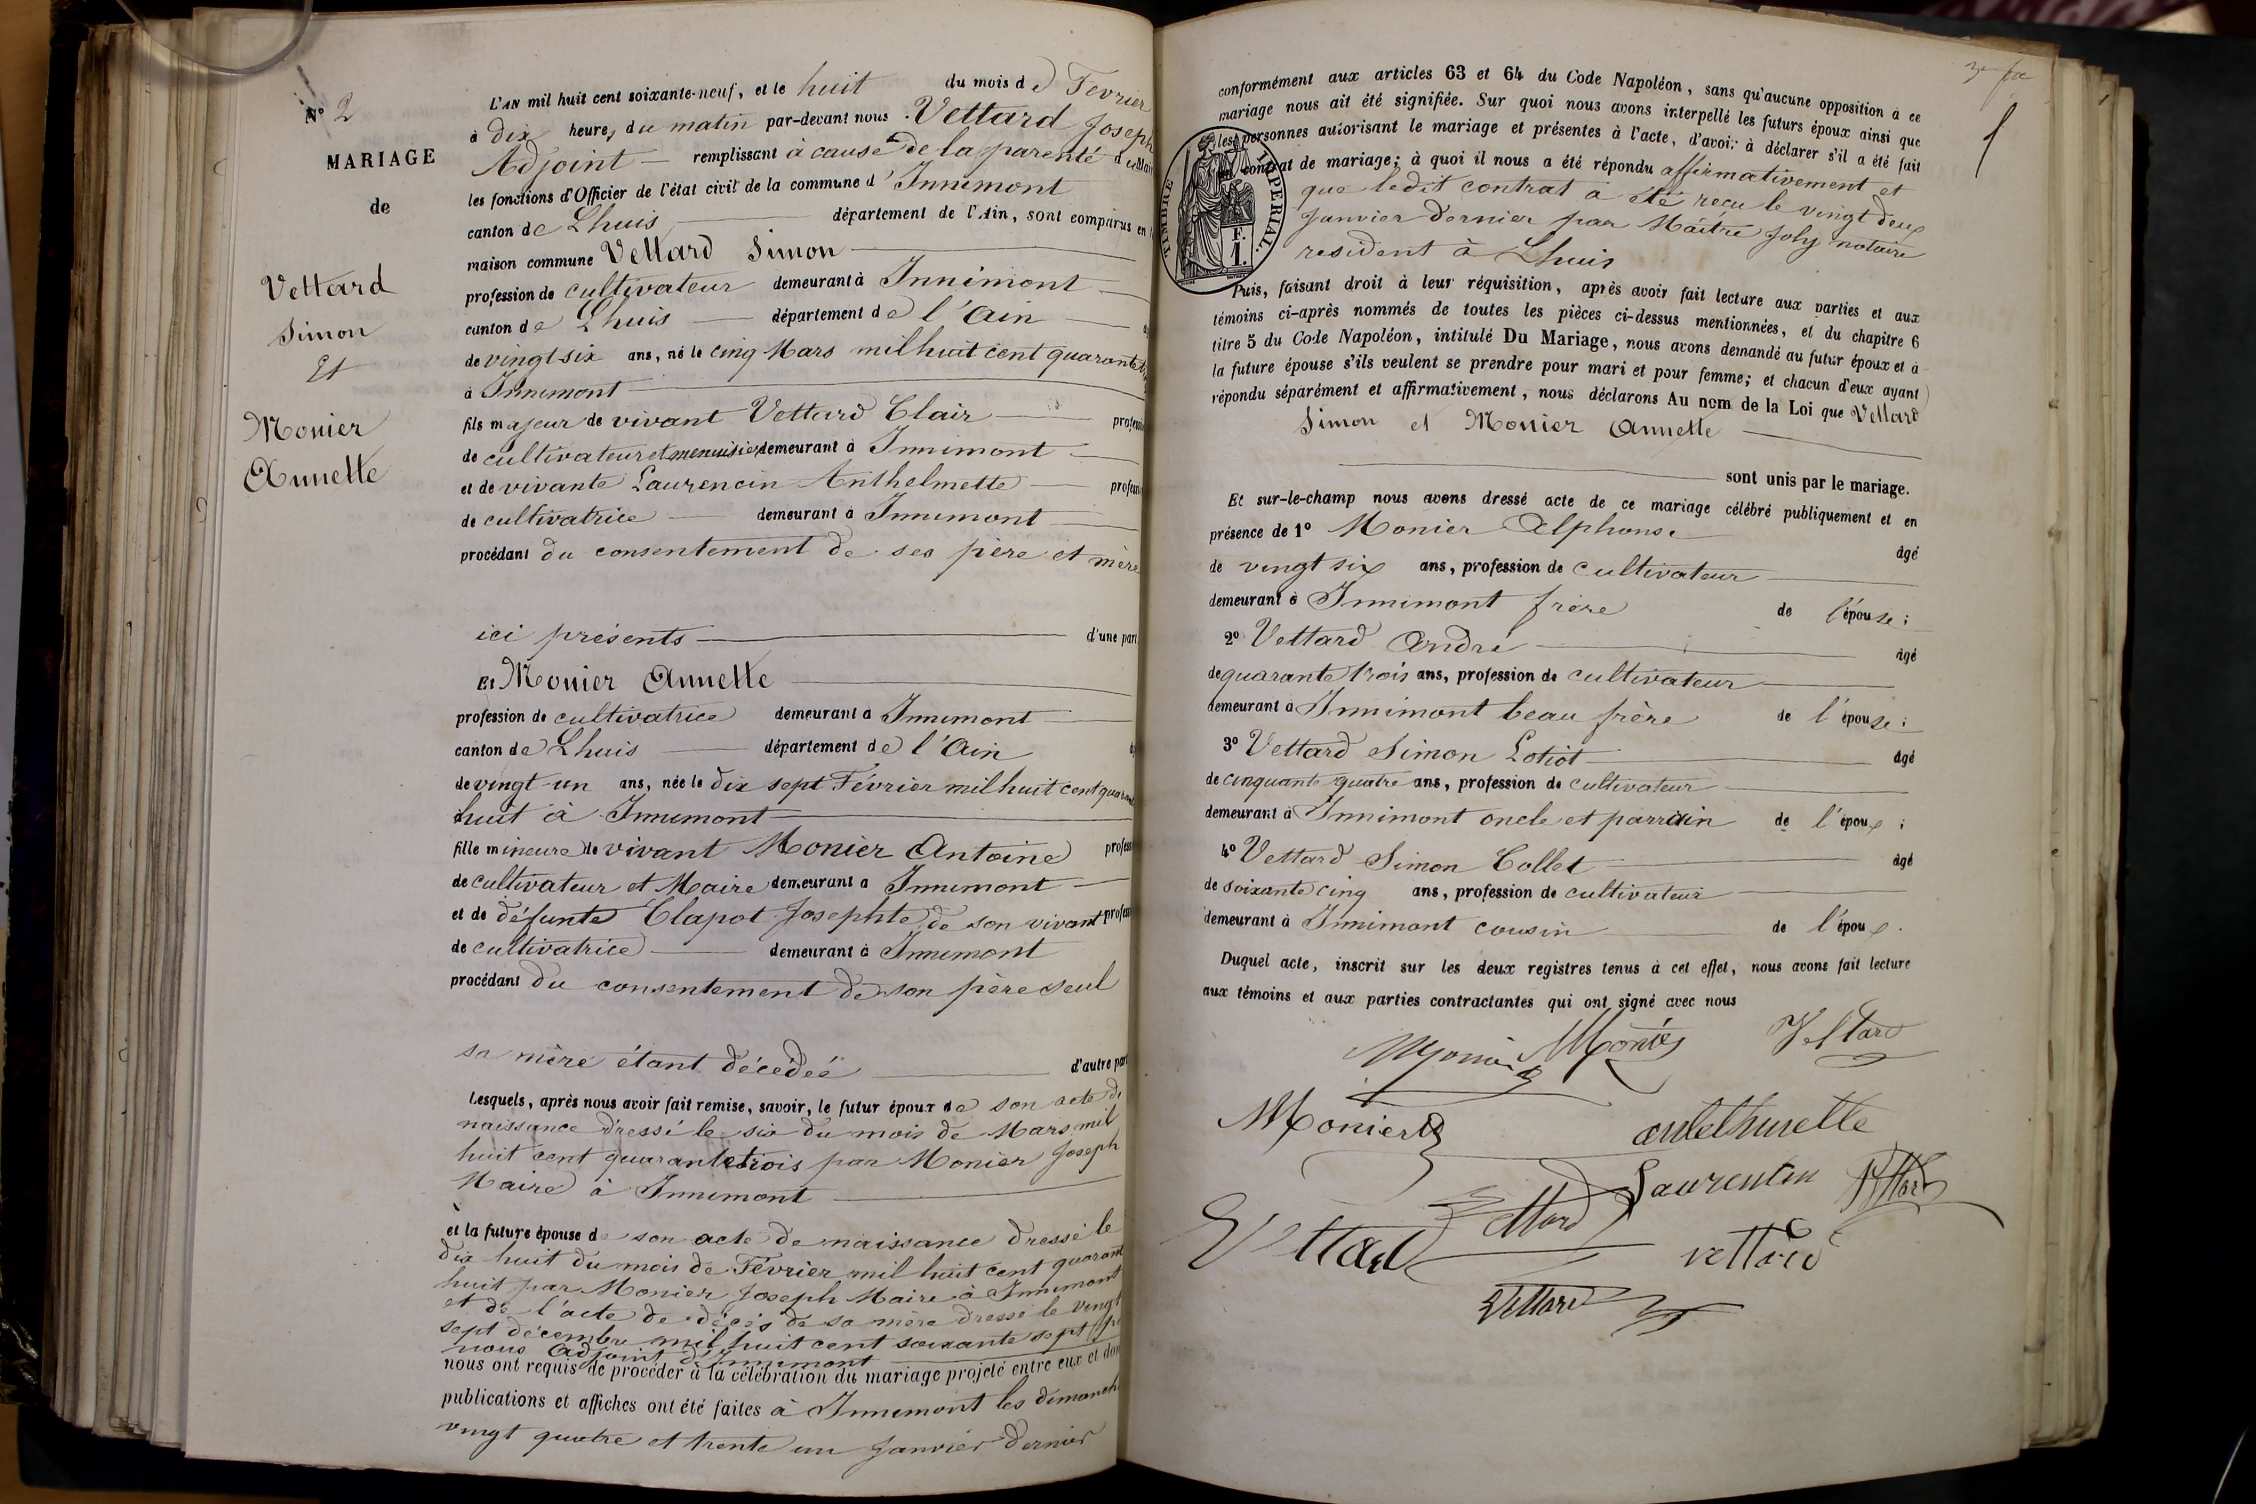 N° 2
MARIAGE
de
Vettard
Simon
Et
Monier
Annette
L'AN mil huit cent soixante-neuf, et le huit du mois de Février
à dix heures du matin par-devant nous Vettard Joseph
Adjoint remplissant à cause de la parenté
les fonctions d'Officier de l'état civil de la commune d'Innimont
canton de Lhuis département de l'Ain, sont comparus en
maison commune Vettard Simon
profession de cultivateur demeurant à Innimont
canton de Lhuis département de l'Ain
de vingt six ans, né le cinq Mars mil huit cent quarante
à Innimont
fils majeur de vivant Vettard Clair
de cultivateur et menuisier demeurant à Innimont
et de vivante Laurencin Anthelmette
de cultivatrice demeurant à Innimont
procédant du consentement de ses père et mère
ici présents d'une part
Et Monier Annette
profession de cultivatrice demeurant à Innimont
canton de Lhuis département de l'Ain
de vingt un ans, née le dix sept Février mil huit cent
huit à Innimont
fille mineure de vivant Monier Antoine
de cultivateur et Maire demeurant à Innimont
et de défunte Clapot Josephte de son vivant
de cultivatrice demeurant à Innimont
procédant du consentement de son père seul
sa mère étant décédée d'autre part
Lesquels, après nous avoir fait remise, savoir, le futur époux de son acte de
naissance dressé le six du mois de Mars mil
huit cent quarante trois par Monier Joseph
Maire à Innimont
et la future épouse de son acte de naissance dressé le
dix huit du mois de Février mil huit cent quarante
huit par Monier Joseph Maire à Innimont
et de l'acte de décès de sa mère dressé le vingt
sept décembre mil huit cent soixante sept
nous Adjoint d'Innimont
nous ont requis de procéder à la célébration du mariage projeté entre eux et dont
publications et affiches ont été faites à Innimont les dimanche
vingt quatre et trente un Janvier dernier
conformément aux articles 63 et 64 du Code Napoléon, sans qu'aucune opposition à ce
mariage nous ait été signifiée. Sur quoi nous avons interpellé les futurs époux ainsi que
les personnes autorisant le mariage et présentes à l'acte, d'avoir à déclarer s'il a été fait
un contrat de mariage; à quoi il nous a été répondu affirmativement et
que ledit contrat a été reçu le vingt deux
Janvier dernier par Maître Joly notaire
resident à Lhuis
TIMBRE IMPERIAL.
F.
1.
Puis, faisant droit à leur réquisition, après avoir fait lecture aux parties et aux
témoins ci-après nommés de toutes les pièces ci-dessus mentionnées, et du chapitre 6
titre 5 du Code Napoléon, intitulé Du Mariage, nous avons demandé au futur époux et à
la future épouse s'ils veulent se prendre pour mari et pour femme; et chacun d'eux ayant
répondu séparément et affirmativement, nous déclarons Au nom de la Loi que Vettard
Simon et Monier Annette
sont unis par le mariage.
Et sur-le-champ nous avons dressé acte de ce mariage célébré publiquement et en
présence de 1° Monier Alphonse âgé
de vingt six ans, profession de cultivateur
demeurant à Innimont frère de l'épouse;
2° Vettard André âgé
de quarante trois ans, profession de cultivateur
demeurant à Innimont beau frère de l'épouse;
3° Vettard Simon Lotiot âgé
de cinquante quatre ans, profession de cultivateur
demeurant à Innimont oncle et parrain de l'époux;
4° Vettard Simon Collet âgé
de soixante cinq ans, profession de cultivateur
demeurant à Innimont cousin de l'époux.
Duquel acte, inscrit sur les deux registres tenus à cet effet, nous avons fait lecture
aux témoins et aux parties contractantes qui ont signé avec nous
Vettard
Monier
Laurencin
Vettard
vettard
Vettard